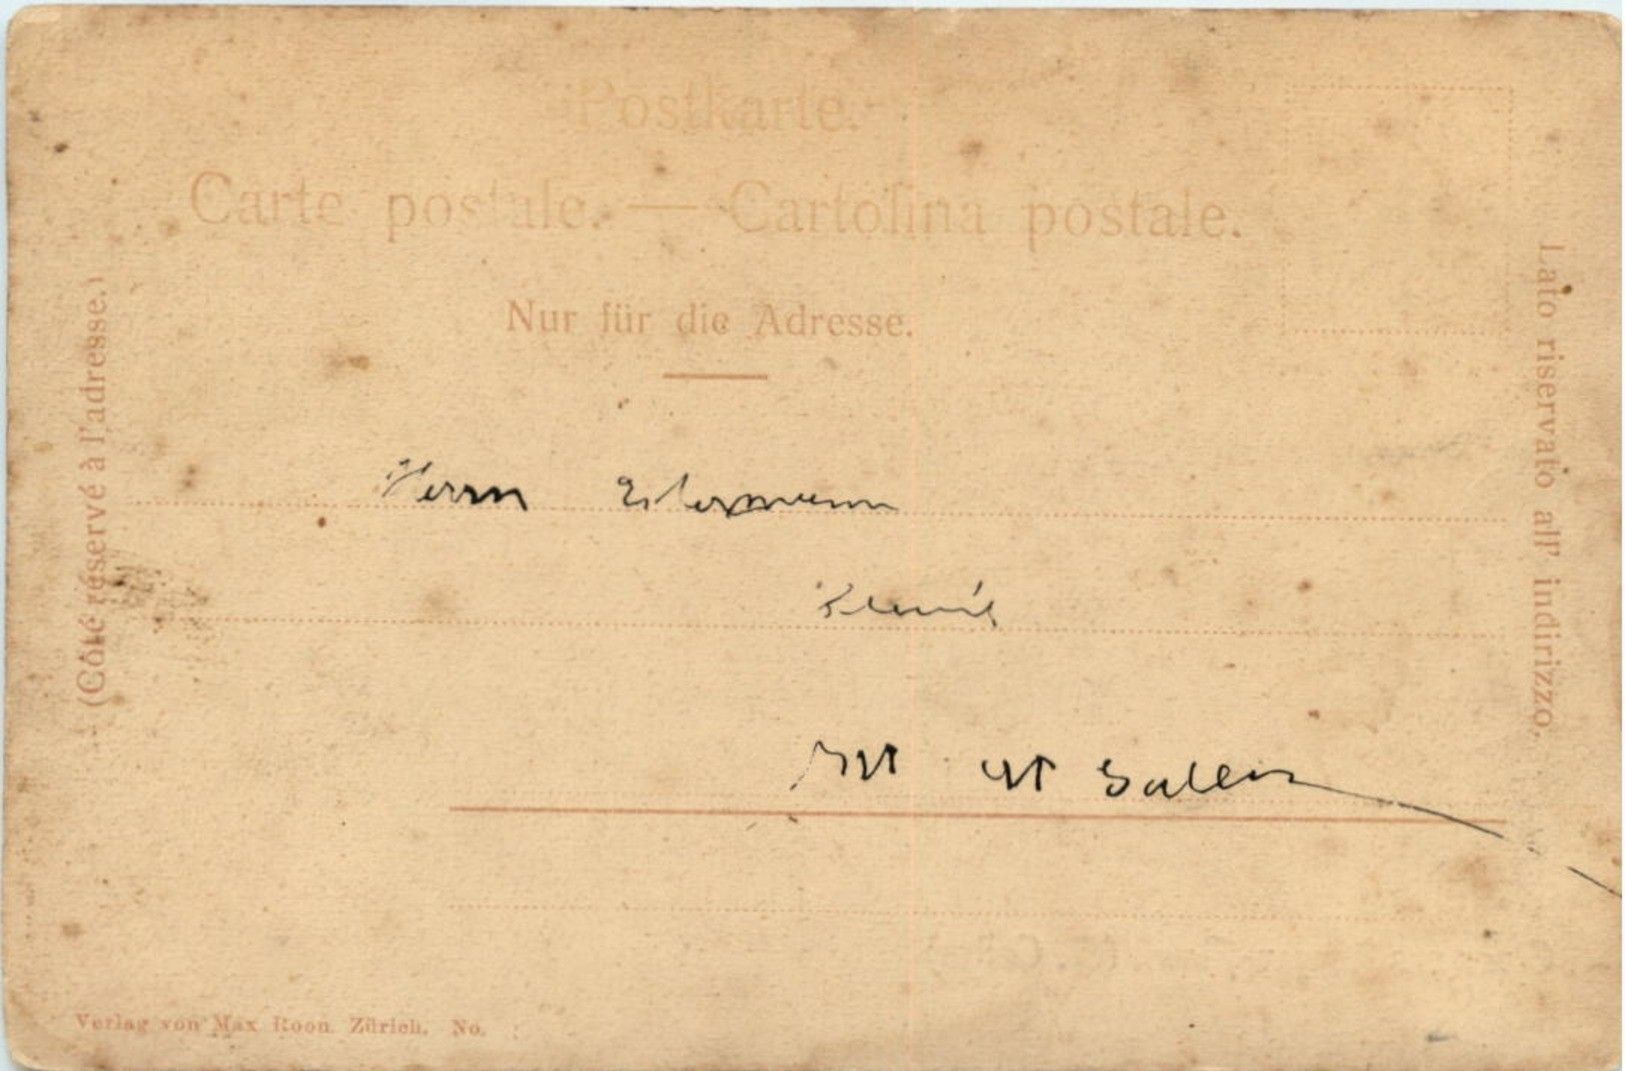 Postkarte.
Carte postale. — Cartolina postale.
Nur für die Adresse.
(Côté réservé à l'adresse.)
Lato riservato all' indirizzo.
Herrn
St Gallen
Verlag von Max Roon. Zürich. No.